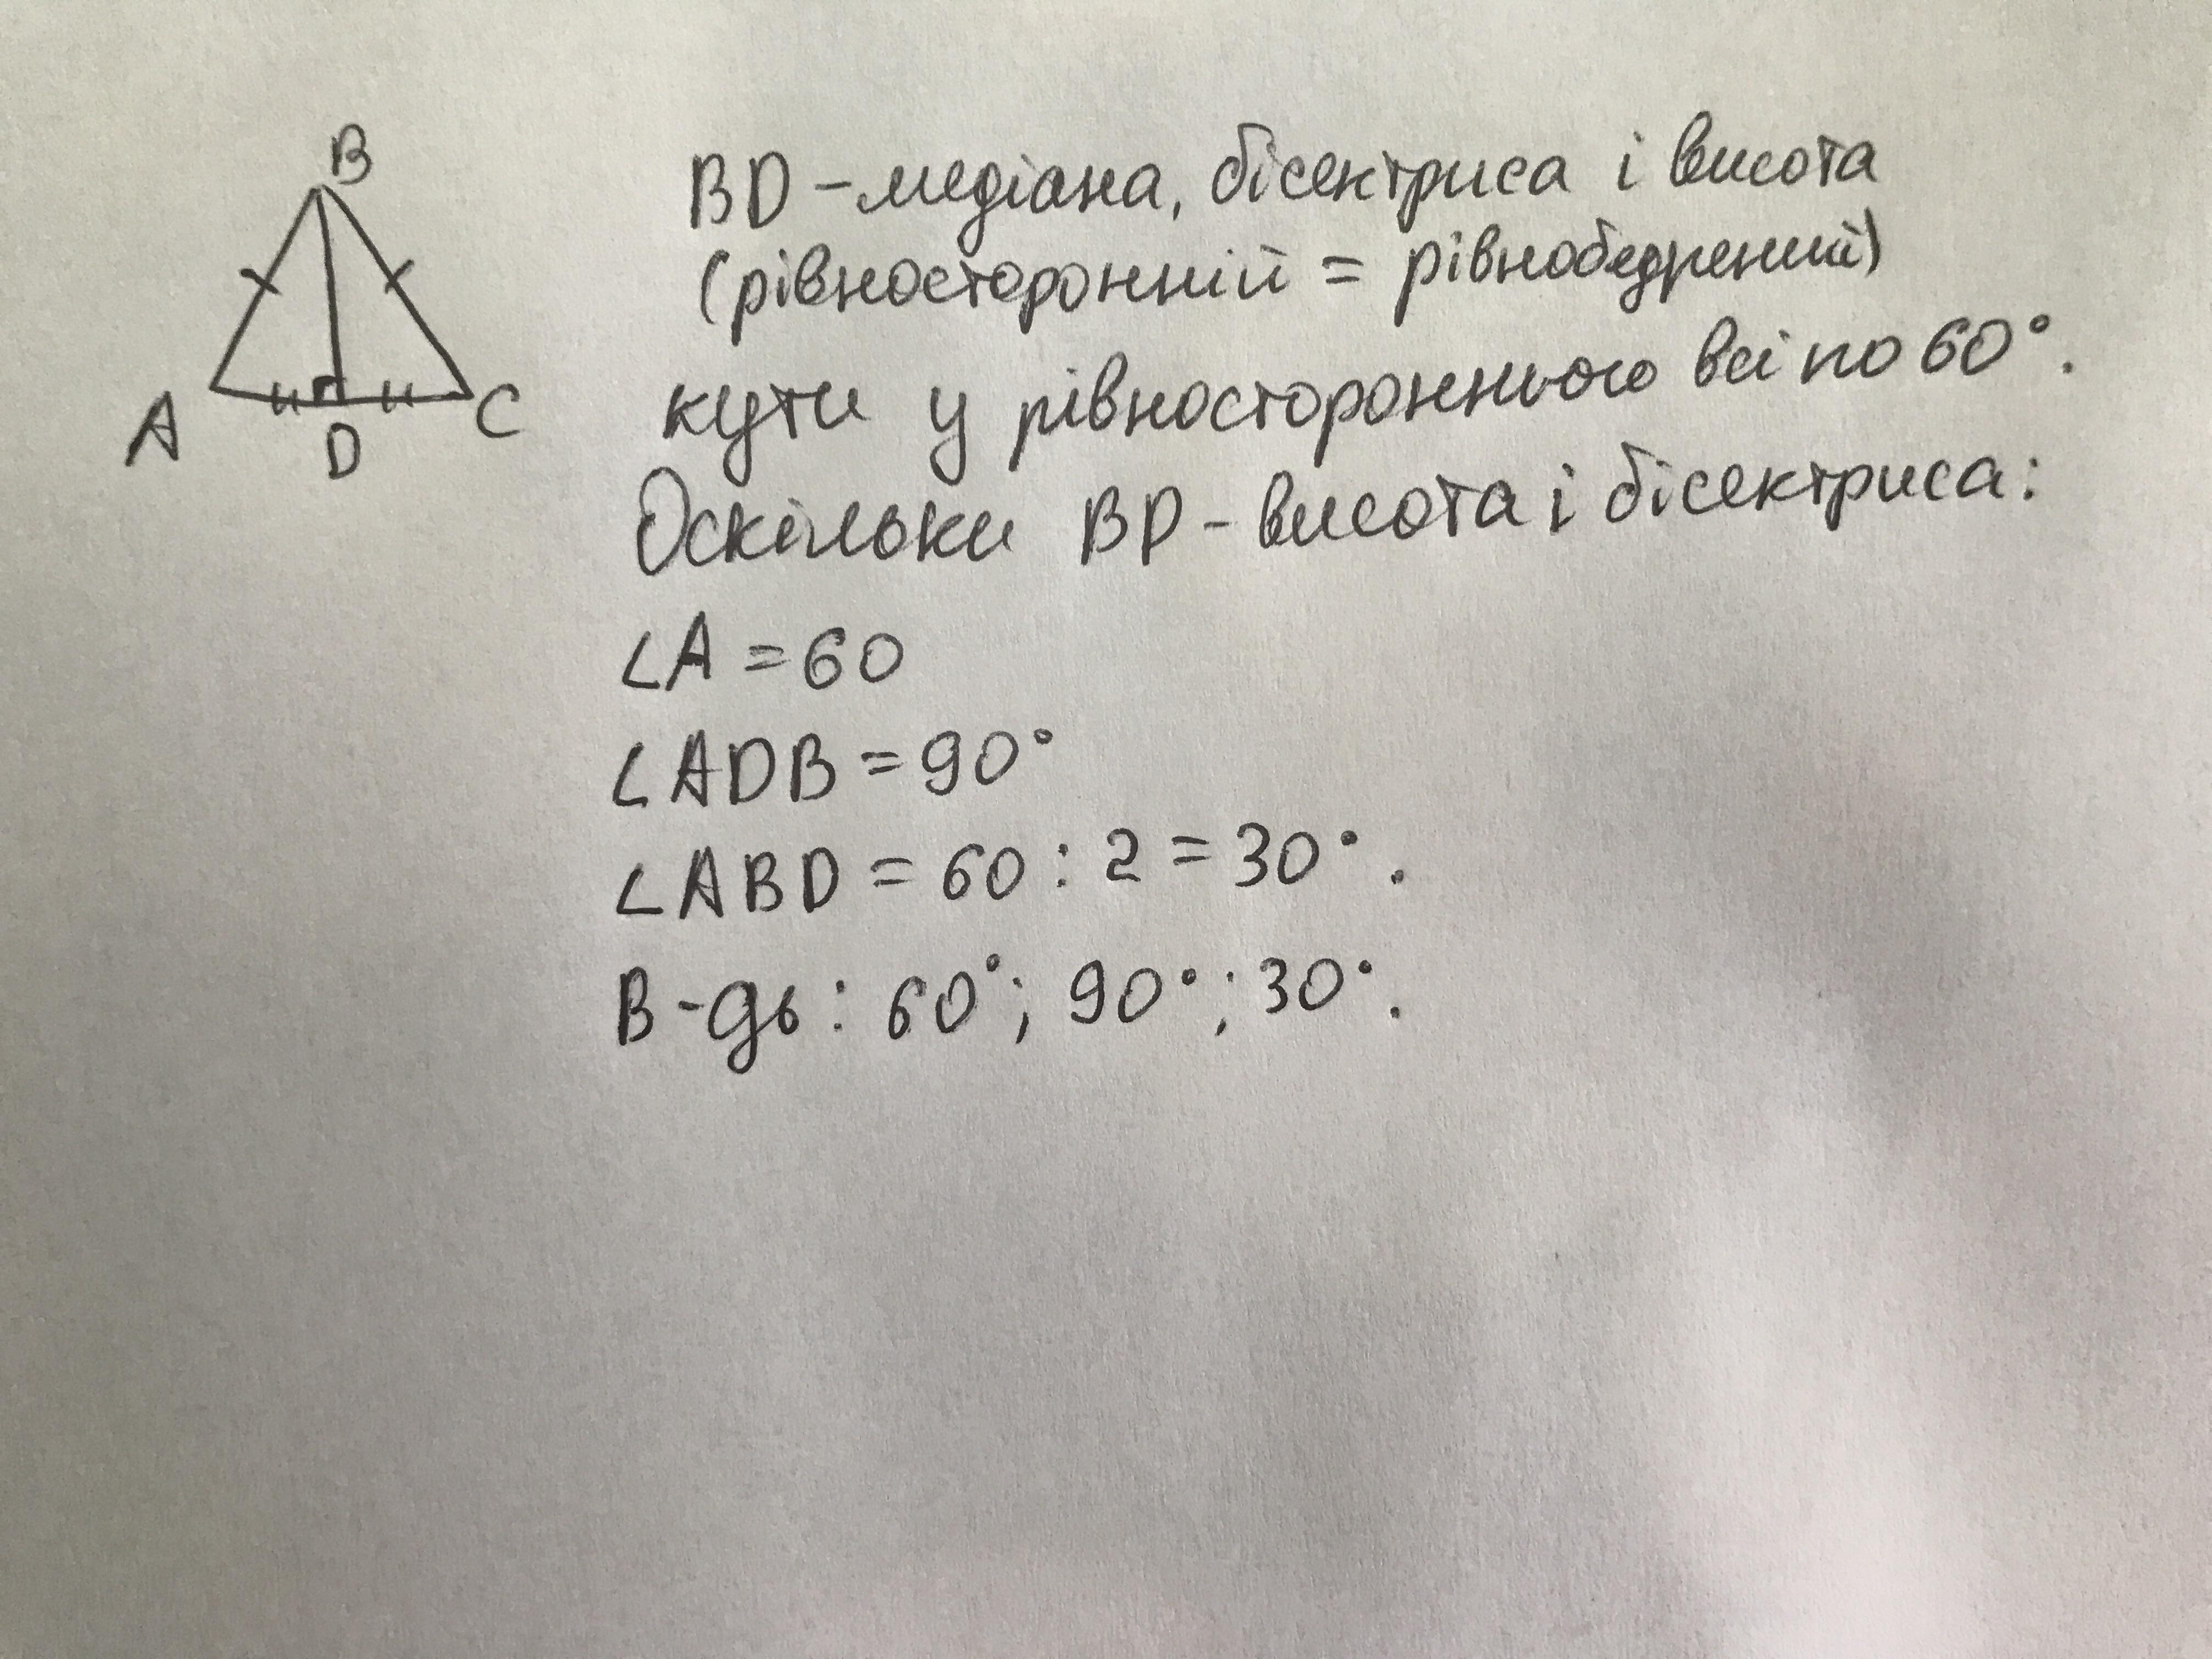 B
A
D
C
BD - медіана, бісектриса і висота
(рівносторонній = рівнобедрений)
кути у рівностороннього всі по 60°.
Оскільки BD - висота і бісектриса:
∠A = 60
∠ADB = 90°
∠ABD = 60 : 2 = 30°.
В-дь: 60°; 90°; 30°.